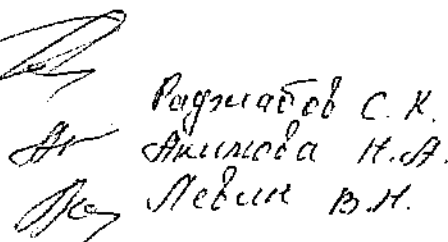 Раджабов С. К.
Акимова Н.А.
Левин В.Н.